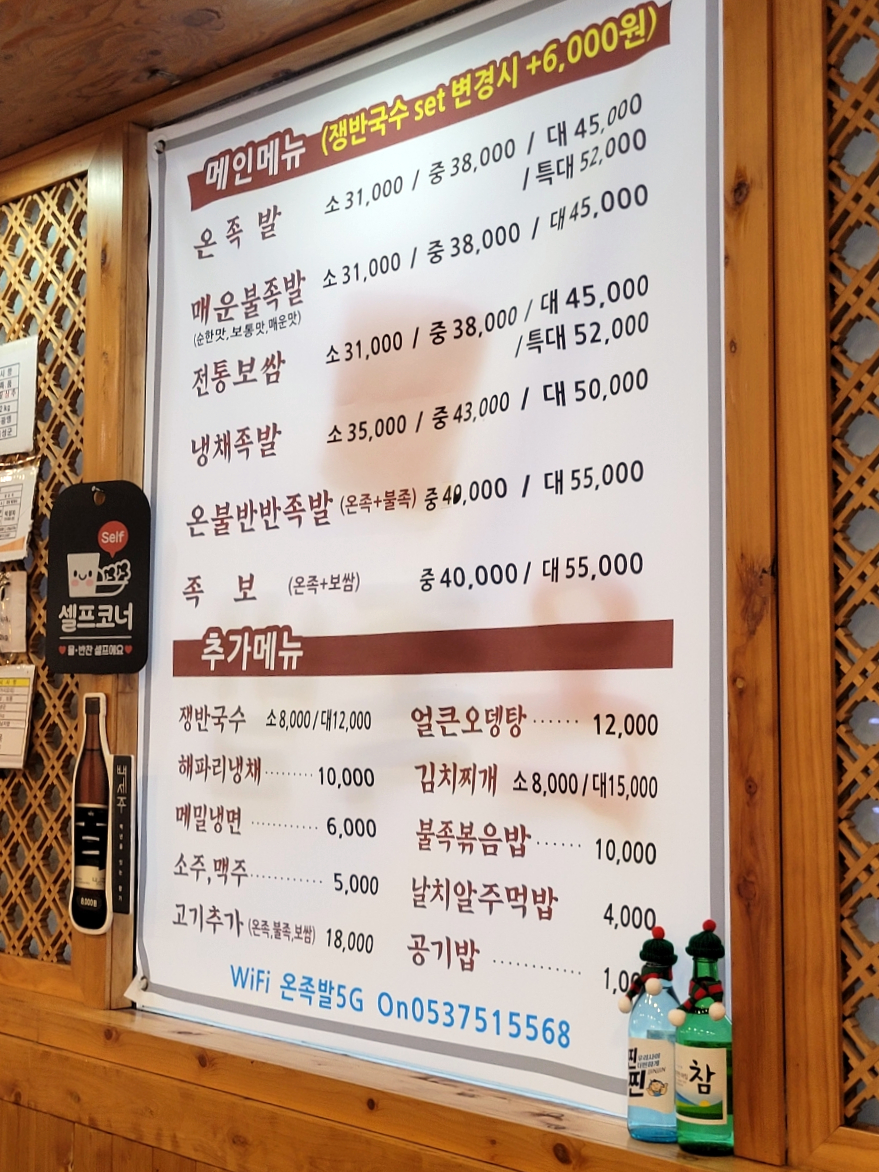 메인메뉴 (쟁반국수 set 변경시 +6,000원)
온족발 소 31,000 / 중 38,000 / 대 45,000
/ 특대 52,000
매운불족발 소 31,000 / 중 38,000 / 대 45,000
(순한맛,보통맛,매운맛)
전통보쌈 소 31,000 / 중 38,000 / 대 45,000
/특대 52,000
냉채족발 소 35,000 / 중 43,000 / 대 50,000
온불반반족발 (온족+불족) 중 40,000 / 대 55,000
족 보 (온족+보쌈) 중 40,000 / 대 55,000
추가메뉴
쟁반국수 소 8,000 / 대12,000
해파리냉채 ········· 10,000
메밀냉면 ············ 6,000
소주,맥주 ············ 5,000
고기추가 (온족,불족,보쌈) 18,000
얼큰오뎅탕 ······ 12,000
김치찌개 소 8,000 / 대15,000
불족볶음밥 ······ 10,000
날치알주먹밥 4,000
공기밥 ············
WiFi 온족발5G On0537515568
Self
셀프코너
♥물·반찬 셀프예요♥
백세주
참